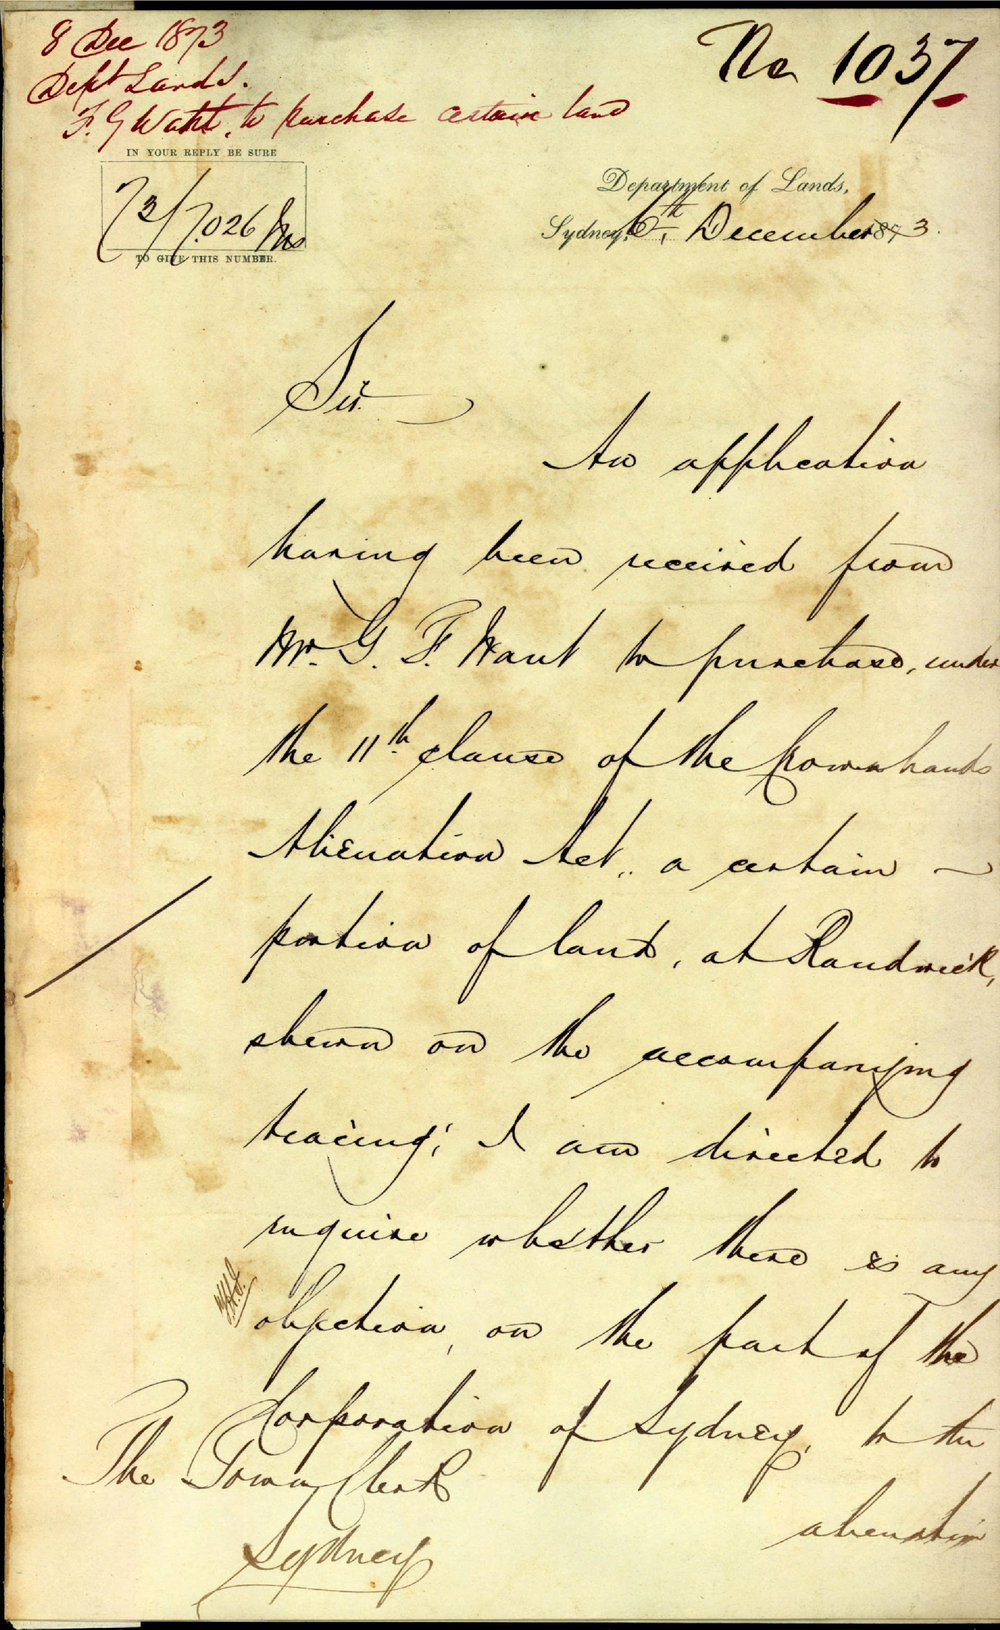 8 Dec 1873
Dept Lands.
F. G Waht, to purchase certain land
No 1037
IN YOUR REPLY BE SURE
73/7.026 Mis
TO GIVE THIS NUMBER.
Department of Lands,
Sydney, 6th, December 1873.
Sir
An application
having been received from
Mr. G. F. Want to purchase, under
the 11th clause of the Crown Lands
Alienation Act, a certain
portion of land, at Randwick,
shewn on the accompanying
tracing; I am directed to
inquire whether there is any
objection, on the part of the
Corporation of Sydney, to the
alienation
The Town Clerk
Sydney